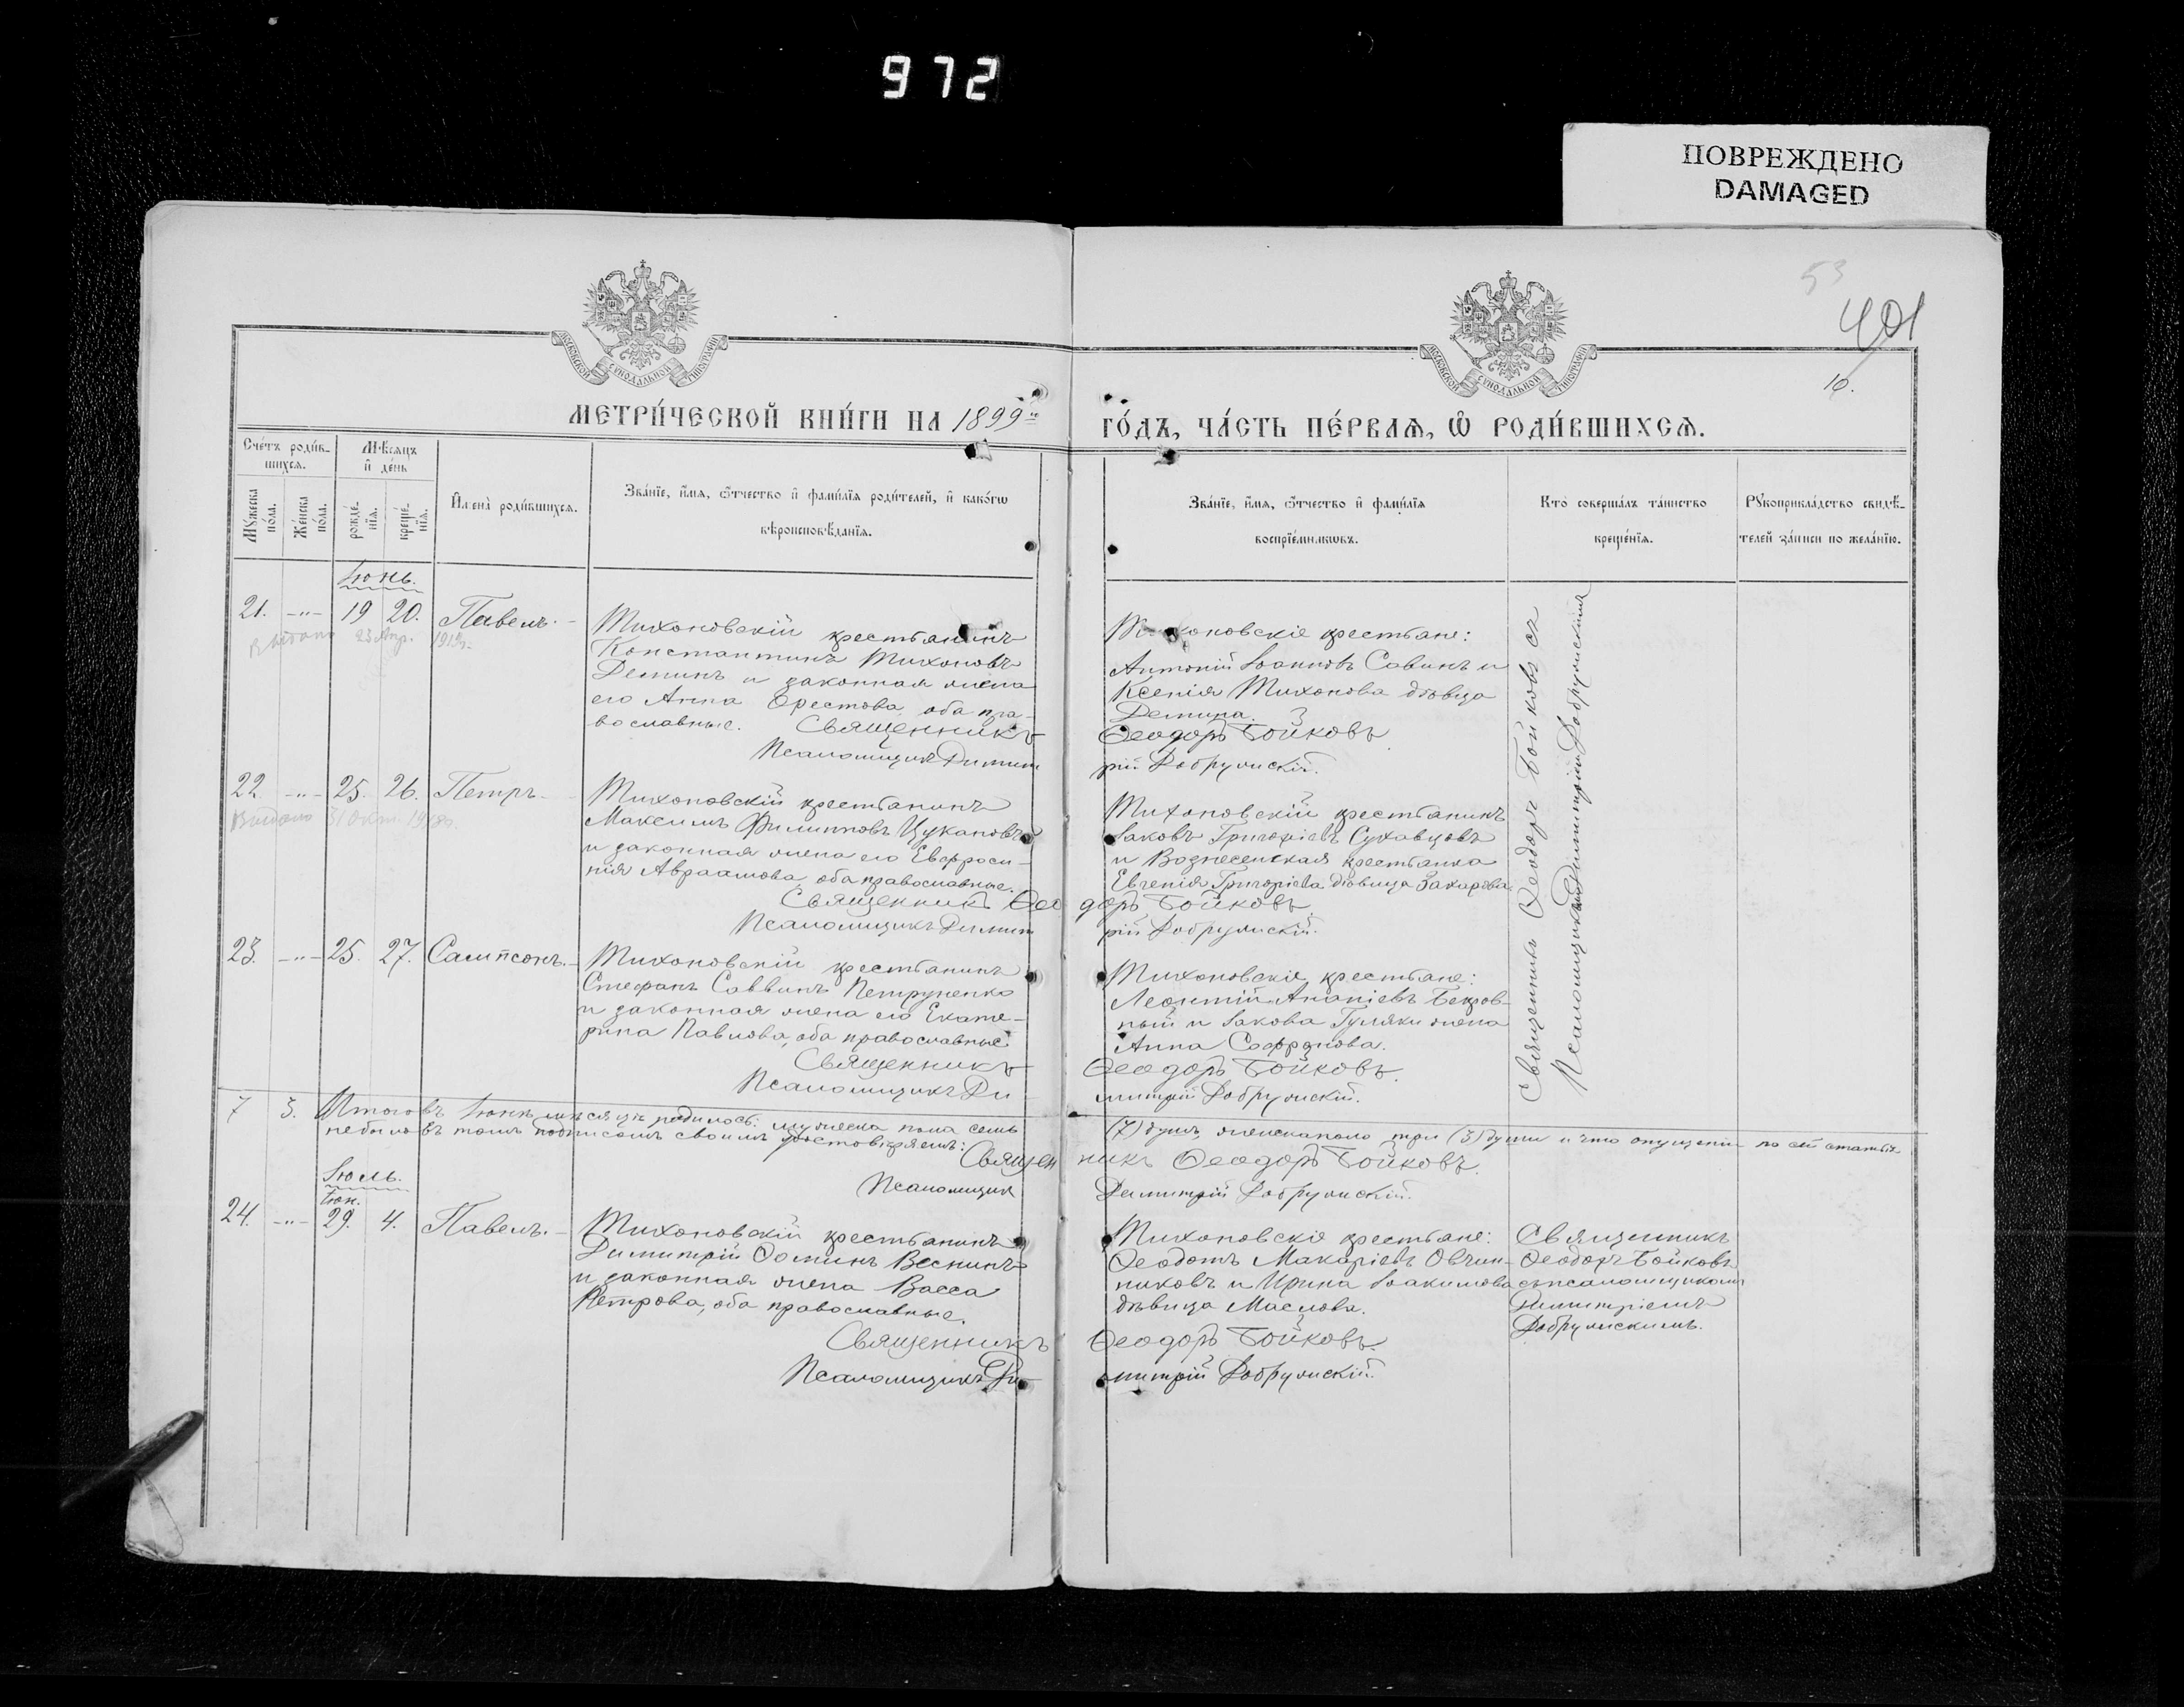 972
ПОВРЕЖДЕНО
DAMAGED
53
401
10.
МОСКОВСКОЙ СѴНОДАЛЬНОЙ ТИПОГРАФІИ
МОСКОВСКОЙ СѴНОДАЛЬНОЙ ТИПОГРАФІИ
МЕТРИ́ЧЕСКОЙ КНИ́ГИ НА 1899
ГО́ДЪ, ЧА́СТЬ ПЕ́РВАѦ, Ѡ РОДИ́ВШИХСѦ.
Сче́тъ роди́в-
шихсѧ.
Мѣсяцъ
и҆ де́нь
Мꙋжеска
по́ла.
Же́нска
по́ла.
рожде́-
нїѧ.
креще́-
нїѧ.
И҆мена̀ роди́вшихсѧ.
Зва́нїе, и҆́мѧ, ѻ҆́тчество и҆ фамѝлїѧ роди́телей, и҆ како́гѡ
вѣроисповѣ́данїѧ.
Зва́нїе, и҆́мѧ, ѻ҆́тчество и҆ фамѝлїѧ
воспрїе́мникѡвъ.
Кто̀ соверша́лъ та́инство
креще́нїѧ.
Рꙋкоприкла́дство свидѣ́-
телей за́писи по жела́нїю.
Іюнь.
21. -"- 19 20. Павелъ.
Выдано 23 Апр.
Тихоновскій крестьянинъ
Константинъ Тихоновъ
Деминъ и законная жена
его Анна Орестова, оба пра-
вославные. Священникъ
Псаломщикъ Димит
Тихоновскіе крестьяне:
Антоній Іоанновъ Савинъ и
Ксенія Тихонова дѣвица
Демина.
Ѳеодоръ Бойковъ
рій Добружскій.
Священникъ Ѳеодоръ Бойковъ съ
Псаломщикомъ Димитріемъ Добружскимъ
22. -"- 25. 26. Петръ
Выдано 31 Окт.
Тихоновскій крестьянинъ
Максимъ Филипповъ Цукановъ
и законная жена его Евфроси-
нія Авраамова, оба православные.
Священникъ Ѳео
Псаломщикъ Димит
Тихоновскій крестьянинъ
Іаковъ Григоріевъ Сухавцовъ
и Вознесенская крестьянка
Евгенія Григоріева дѣвица Захарова
доръ Бойковъ.
рій Добружскій.
23. -"- 25. 27. Сампсонъ.
Тихоновскій крестьянинъ
Стефанъ Саввинъ Петруненко
и законная жена его Екате-
рина Павлова, оба православные
Священникъ
Псаломщикъ Ди
Тихоновскіе крестьяне:
Леонтій Ананіевъ
и Іакова Гуляки жена
Анна Софронова.
Ѳеодоръ Бойковъ.
митрій Добружскій.
7 3. Итого въ Іюнѣ мѣсяцѣ родилось: мужеска пола семь
(7) душъ, женска пола три (3) души и что опущеній по сей статьѣ
не было въ томъ подписомъ своимъ удостовѣряемъ:
Священ
никъ Ѳеодоръ Бойковъ.
Псаломщик
Димитрій Добружскій.
Іюль.
Іюн.
24. -"- 29. 4. Павелъ.
Тихоновскій крестьянинъ
Димитрій Ѳоминъ Веснинъ
и законная жена Васса
Петрова, оба православные.
Священникъ
Псаломщикъ Ди
Тихоновскіе крестьяне:
Ѳеодотъ Макаріевъ Овчин-
никовъ и Ирина Іоакимова
дѣвица Маслова.
Ѳеодоръ Бойковъ.
митрій Добружскій.
Священникъ
Ѳеодоръ Бойковъ
съ псаломщикомъ
Димитріемъ
Добружскимъ.